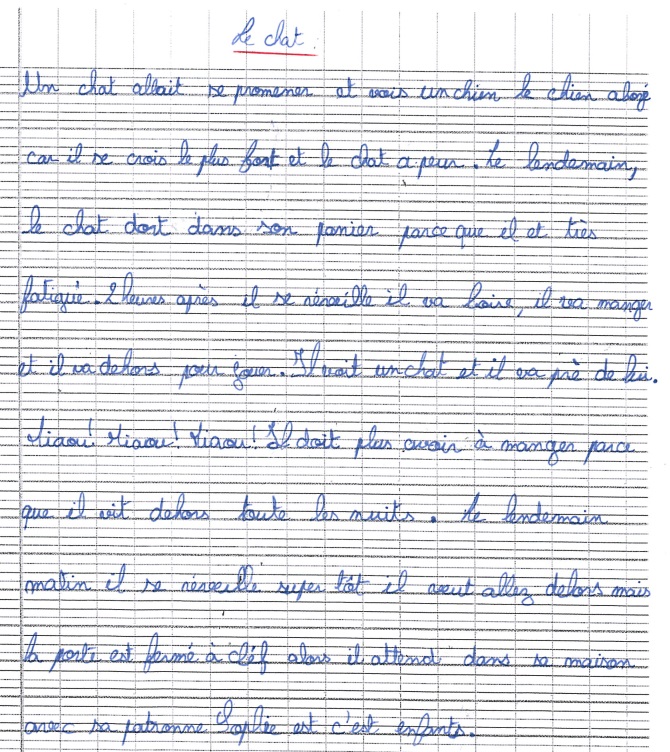 Le chat.
Un chat allait se promener et vois un chien le chien aboje
car il se crois le plus fort et le chat a peur. Le lendemain,
le chat dort dans son panier parce que il et très
fatigué. 2 heures après il se réveille il va boire, il va manger
et il va dehors pour jouer. Il voit un chat et il va prè de lui.
Miaou! Miaou! Miaou! Il doit plus avoir à manger parce
que il vit dehors toute les nuits. Le lendemain
matin il se réveille super tôt il veut allez dehors mais
la porte est fermé à cléf alors il attend dans sa maison
avec sa patronne Sophie est c'est enfants.